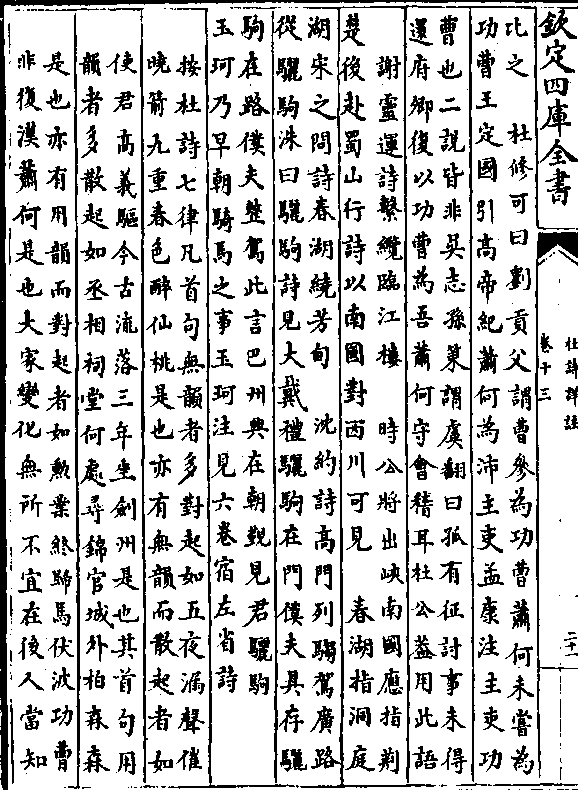 欽定四庫全書
杜詩詳註
卷十三
二十一
比之　杜修可曰劉貢父謂曹參為功曹蕭何未嘗為
功曹王定國引高帝紀蕭何為沛主吏孟康注主吏功
曹也二說皆非吳志孫策謂虞翻曰孤有征討事未得
還府卿復以功曹為吾蕭何守會稽耳杜公蓋用此語
謝靈運詩繫纜臨江樓　時公將出峽南國應指荆
楚後赴蜀山行詩以南國對西川可見　春湖指洞庭
湖宋之問詩春湖繞芳甸　沈約詩高門列騶駕廣路
從驪駒洙曰驪駒詩見大戴禮驪駒在門僕夫具存驪
駒在路僕夫整駕此言巴州興在朝覲見君驪駒
玉珂乃早朝騎馬之事玉珂注見六卷宿左省詩
按杜詩七律凡首句無韻者多對起如五夜漏聲催
曉箭九重春色醉仙桃是也亦有無韻而散起者如
使君高義驅今古流落三年坐劍州是也其首句用
韻者多散起如丞相祠堂何處尋錦官城外柏森森
是也亦有用韻而對起者如勲業終歸馬伏波功曹
非復漢蕭何是也大家變化無所不宜在後人當知